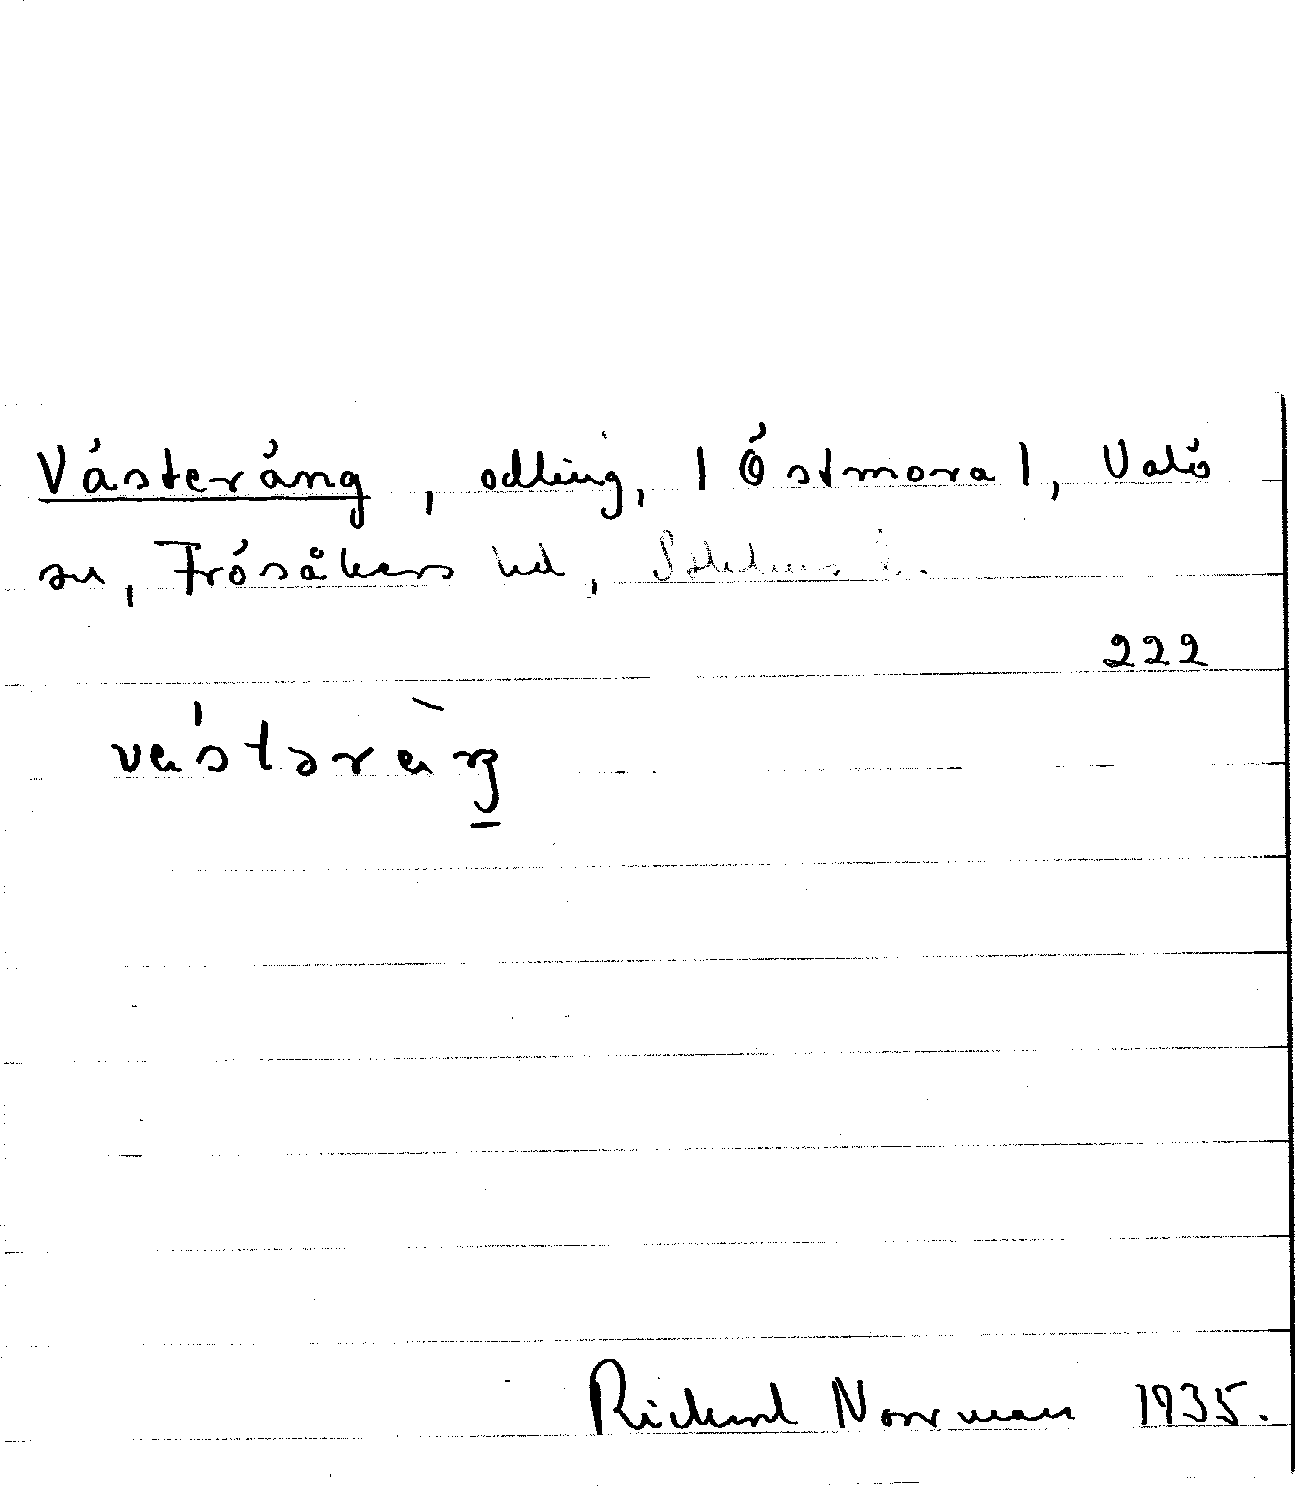 Västeräng, odling, | Östmora |, Valö
sn, Frösåkers hd,
222
västəräŋ
Richard Norrman 1935.